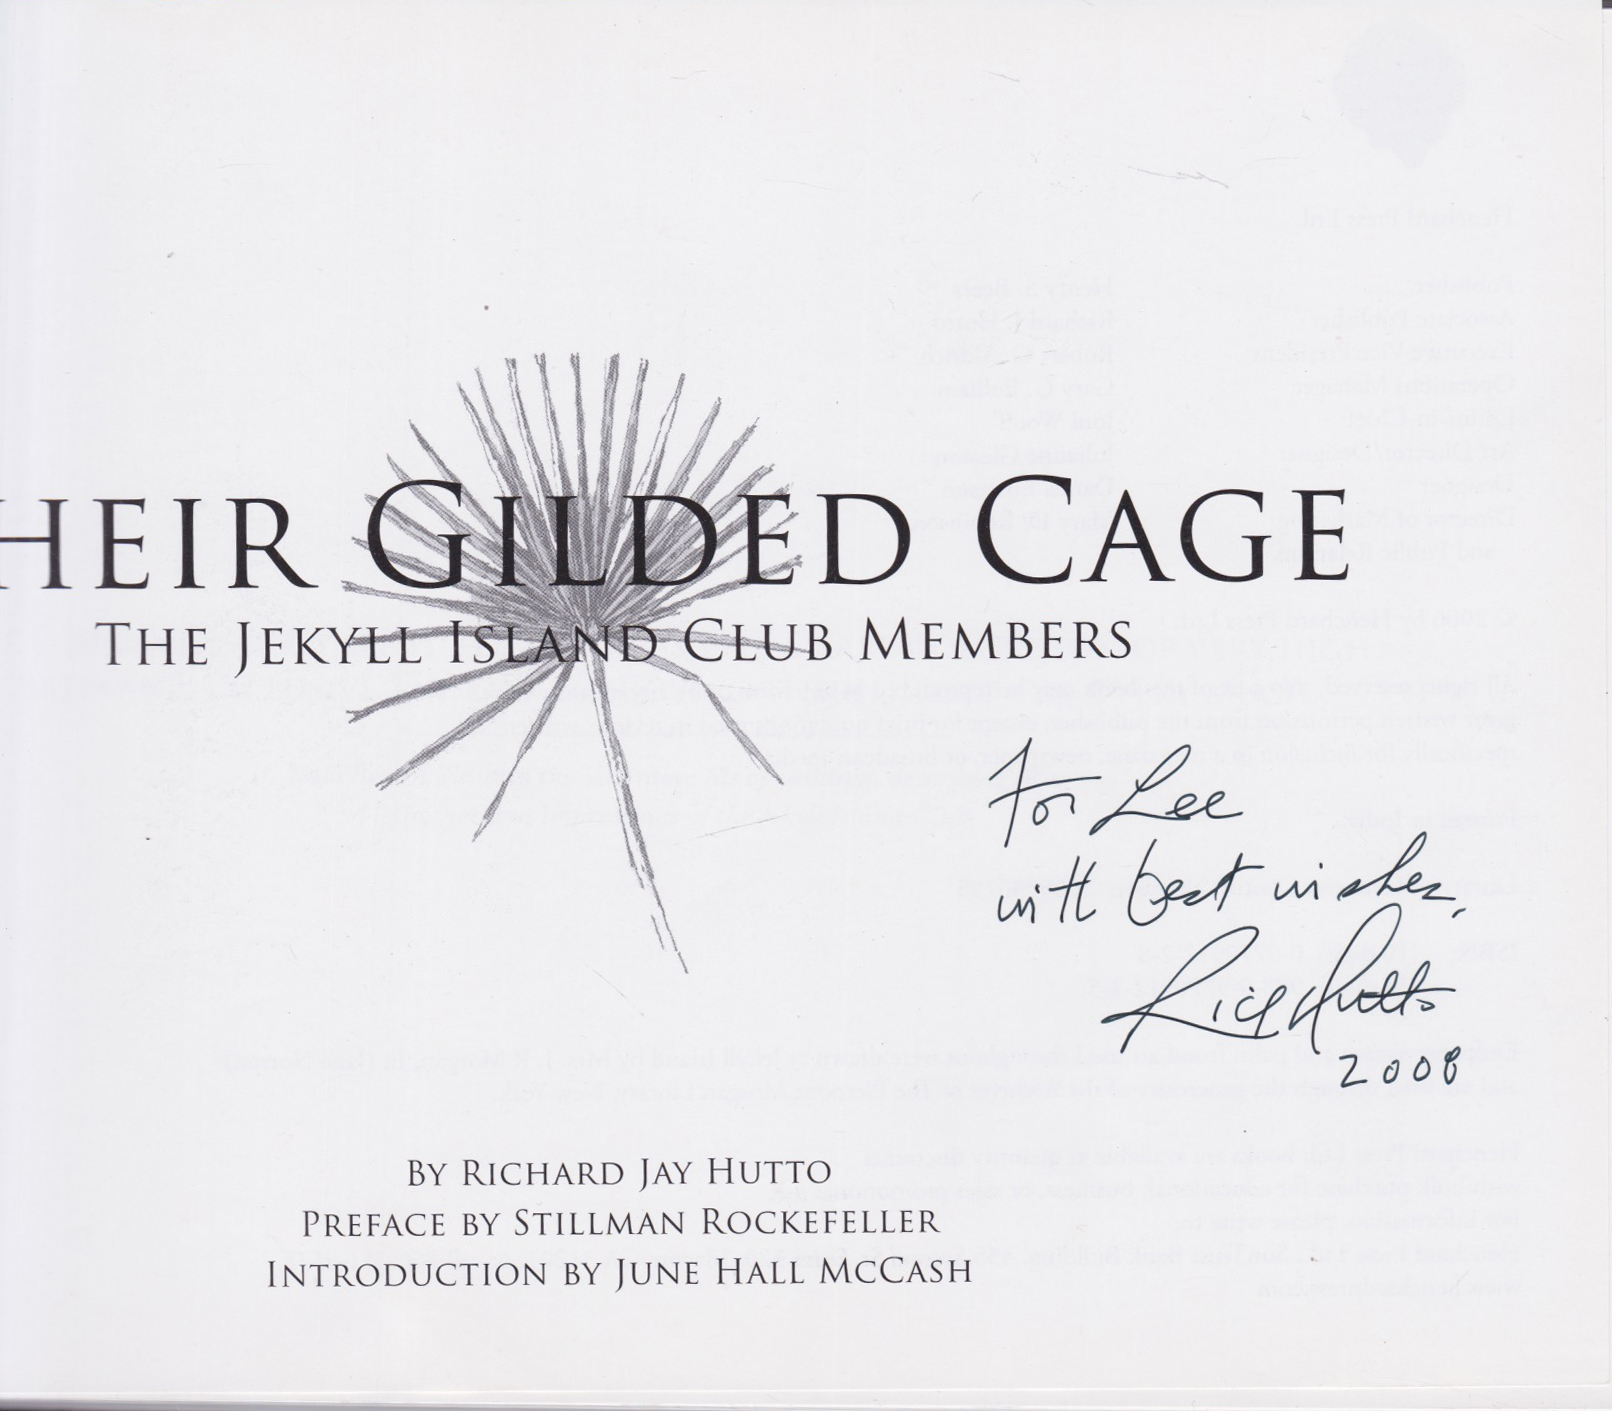 HEIR GILDED CAGE
THE JEKYLL ISLAND CLUB MEMBERS
For Lee
with best wishes,
Rick Hutto
2008
BY RICHARD JAY HUTTO
PREFACE BY STILLMAN ROCKEFELLER
INTRODUCTION BY JUNE HALL MCCASH